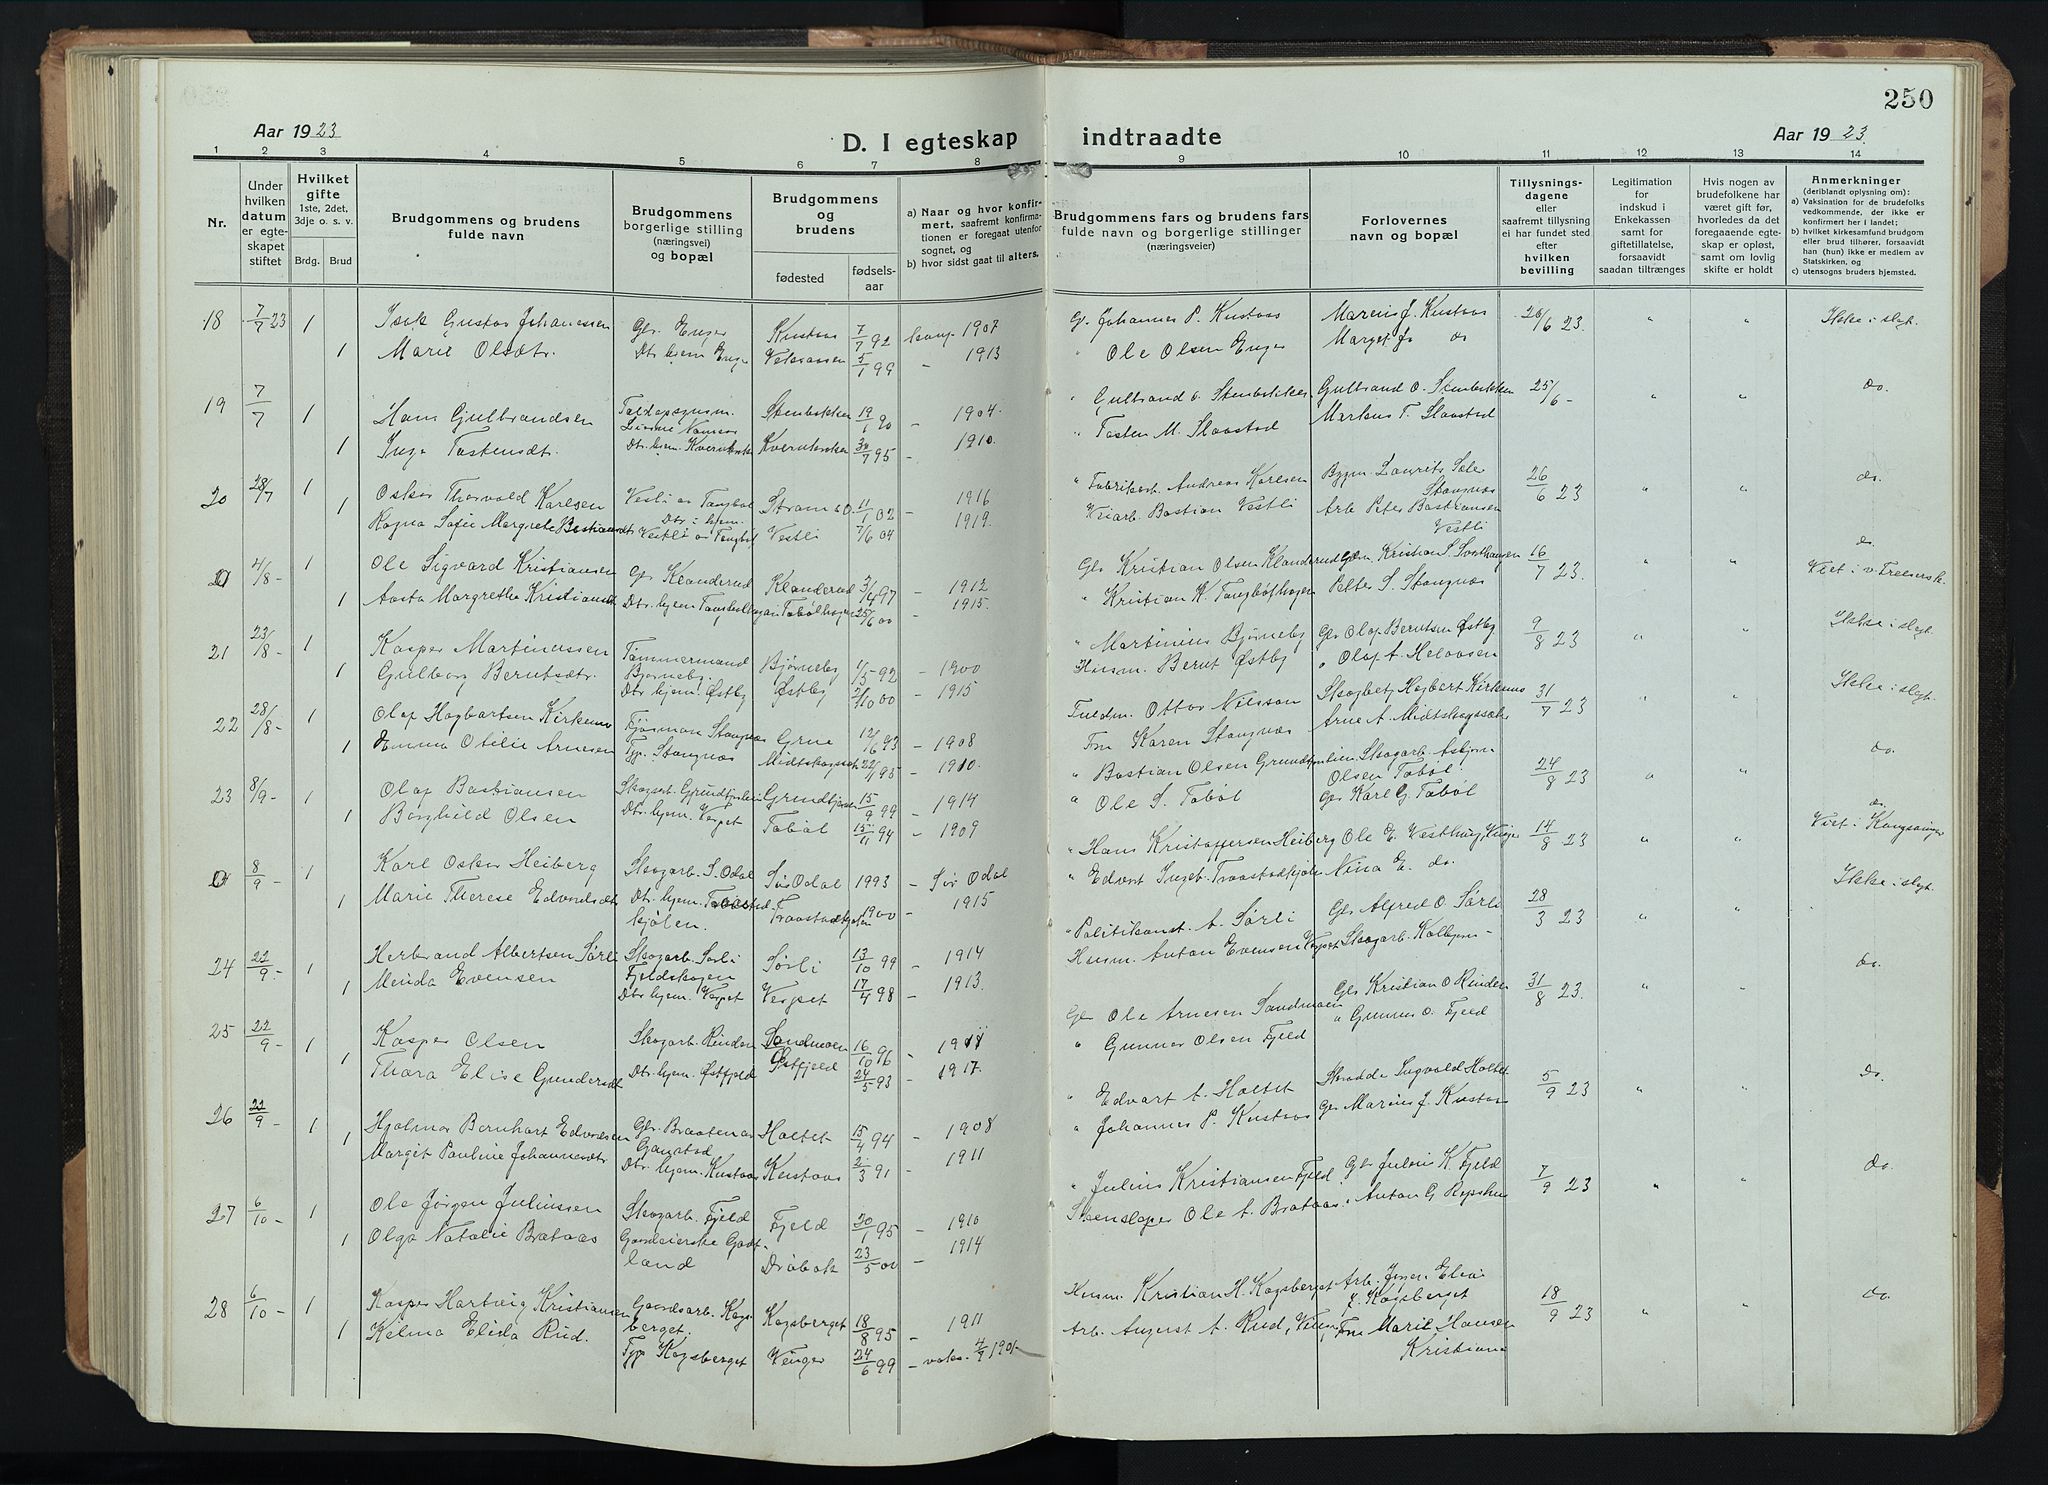 250
Aar 1923
D. I egteskap indtraadte
Aar 1923
1 2 3 4 5 6 7 8 9 10 11 12 13 14
Nr.
Under hvilken datum er egteskapet stiftet
Hvilket gifte
1ste, 2det, 3dje o. s. v.
Brdg. Brud
Brudgommens og brudens fulde navn
Brudgommens borgerlige stilling (næringsvei) og bopæl
Brudgommens og brudens
fødested fødsels-aar
a) Naar og hvor konfirmert, saafremt konfirmationen er foregaat utenfor sognet, og
b) hvor sidst gaat til alters.
Brudgommens fars og brudens fars fulde navn og borgerlige stillinger (næringsveier)
Forlovernes navn og bopæl
Tillysningsdagene eller saafremt tillysning ei har fundet sted efter hvilken bevilling
Legitimation for indskud i Enkekassen samt for giftetillatelse, forsaavidt saadan tiltrænges
Hvis nogen av brudefolkene har været gift før, hvorledes da det foregaaende egteskap er opløst, samt om lovlig skifte er holdt
Anmerkninger
(deriblandt oplysning om):
a) Vaksination for de brudefolks vedkommende, der ikke er konfirmert her i landet;
b) hvilket kirkesamfund brudgom eller brud tilhører, forsaavidt han (hun) ikke er medlem av Statskirken, og
c) utensogns bruders hjemsted.
18 7/7 23 1 Isak Gustav Johanessen Gbr. Enger Kustaas 7/7 92 1907 Gb. Johannes P. Kustaas Marius J. Kustaas 20/6 23. " " Ikke i slegt.
1 Marie Olsdtr. Dtr. hjem Enger 5/1 99 - 1913 " Ole Olsen Enger Marget J. do
19 7/7 1 Hans Gulbrandsen Stenbekken 19/1 90 - 1904. " Gulbrand O. Stenbekken Gulbrand O. Stenbekken 25/6 - " " do.
1 Inga Tostensdtr. Dtr. hjem. Kvernbekken Kvernbekken 30/7 95 - 1910. " Tosten M. Slaastad Markus T. Slaastad
20 28/7 1 Oskar Thorvald Karlsen Vestli av Tangbøl 11/1 02 - 1916 " Fabrikarb. Andreas Karlsen Bygm. Laurits Sæter Stangnæs 26/6 23 " " do.
1 Ragna Sofie Margrethe Bastiansdtr. Dtr. i hjem. Vestli av Tangbøl Vestli 7/6 04 1919. Veiarb. Bastian Vestli Arb. Peter Bastiansen Vestli
4/8 - 1 Ole Sigvard Kristiansen Gbr. Klanderud Klanderud 3/4 97 - 1912 Gbr. Kristian Olsen Klanderud Kristian S. Svarthaugen 16/7 23. " " do. Viet i v. Freders k.
1 Aasta Margrethe Kristiansdtr. Dtr. hjem 25/6 00 - 1915. " Kristian K. Tangbølhagen Petter S. Stangnæs
21 23/8 - 1 Kasper Martinussen Tømmermand Bjørneby. Bjørneby 1/5 92 - 1900 " Martinius Bjørneby Gbr. Olaf Berntsen Østby 9/8 23 " " Ikke i slegt.
1 Gulborg Berntsdtr. Dtr. hjem. Østby Østby 2/10 00 - 1915. Husm. Bernt Østby " Olaf A. Helaasen
22 28/8 - 1 Olaf Hagbartsen Kirkemo Fjøsman Stangnæs Grue 12/6 93 - 1908 Fuldm. Ottar Nilsson Skogbetj. Hagbart Kirkemo 31/7 23 " " Ikke i slegt.
1 Emma Otilie Arnesen Tjp. Stangnæs 22/1 95 - 1910. Fru Karen Stangnæs Arne A. Midtskogsæter
23 8/9 - 1 Olaf Bastiansen Skogsarb. Grundtjernlien Grundtjernlien 15/9 99 - 1914 " Bastian Olsen Grundtjernlien Skogarb. Asbjørn Olsen Tobøl. 24/8 23 " " do.
1 Borghild Olsen Dtr. hjem. Vespet Tobøl 15/4 94 - 1909 " Ole S. Tobøl Gbr Karl G. Tobøl
8/9 - 1 Karl Oskar Heiberg Skogarb. S. Odal Sør Odal 1993 - Sør Odal " Hans Kristoffersen Heiberg Ole E. Vestby, Vinger 14/8 23 " " do. Viet i Kongsvinger
1 Marie Therese Edvardsdtr. Dtr. hjem. Traastadkjølen. Traastadkjølen 1900 - 1915 " Edvart Ingeb. Traastadkjølen Nina E. do. Ikke i slegt.
24 22/9 - 1 Herbrand Albertsen Sørli Skogarb. Sørli Fjeldskogen Sørli 13/10 99 - 1914 " Politikonst. A. Sørli Gbr Alfred O. Sørli 28/3 23 " "
1 Minda Evensen Dtr. hjem. Vespet Vespet 17/4 98 - 1913. Husm. Anton Evensen Vespet Skogarb. Kolbjørn - do.
25 22/9 - 1 Kasper Olsen Skogarb. Rinden Sandmoen 16/10 96 - 1911 Gbr Ole Arnesen Sandmoen Gbr Kristian O Rinden 31/8 23. " "
1 Thora Elise Gundersdt Dtr. hjem. Østfjeld Østfjeld 24/5 93 - 1917. " Gunnar Olsen Fjeld " Gunnus O. Fjeld
26 22/9 - 1 Hjalmar Bernhart Edvardsen Gbr. Braaten av Gaustad Holtet 15/4 94 - 1908 " Edvart A. Holtet Skrædder Ingvald Holtet 5/9 23 " " do.
1 Margit Pauline Johannesdtr Dtr. hjem. Kustaas Kustaas 2/3 91 - 1911 " Johannes P. Kustaas Gbr Marius J. Kustaas
27 6/10 - 1 Ole Jørgen Juliussen Skogarb. Fjeld Fjeld 20/1 95 - 1910 " Julius Kristiansen Fjeld Gbr Julius K. Fjeld 7/9 23 " " do.
1 Olga Natalie Brataas Gaardeierske Godtland Drøbak 23/5 00 - 1914 Stenslaper Ole A. Brataas. Anton G. Rypshus
28 6/10 - 1 Kasper Hartvig Kristiansen Gaardsarb. Kogsberget. Kogsberget 18/8 95 - 1911 Husm. Kristian H. Kogsberget Arb. Kogsberget 18/9 23 " " do.
1 Kelma Elida Rud. Tjp Kogsberget Vinger 24/6 99 - vaks. 4/9 1901 Arb. August A. Rud, Fru Marie Hansen Kristiania